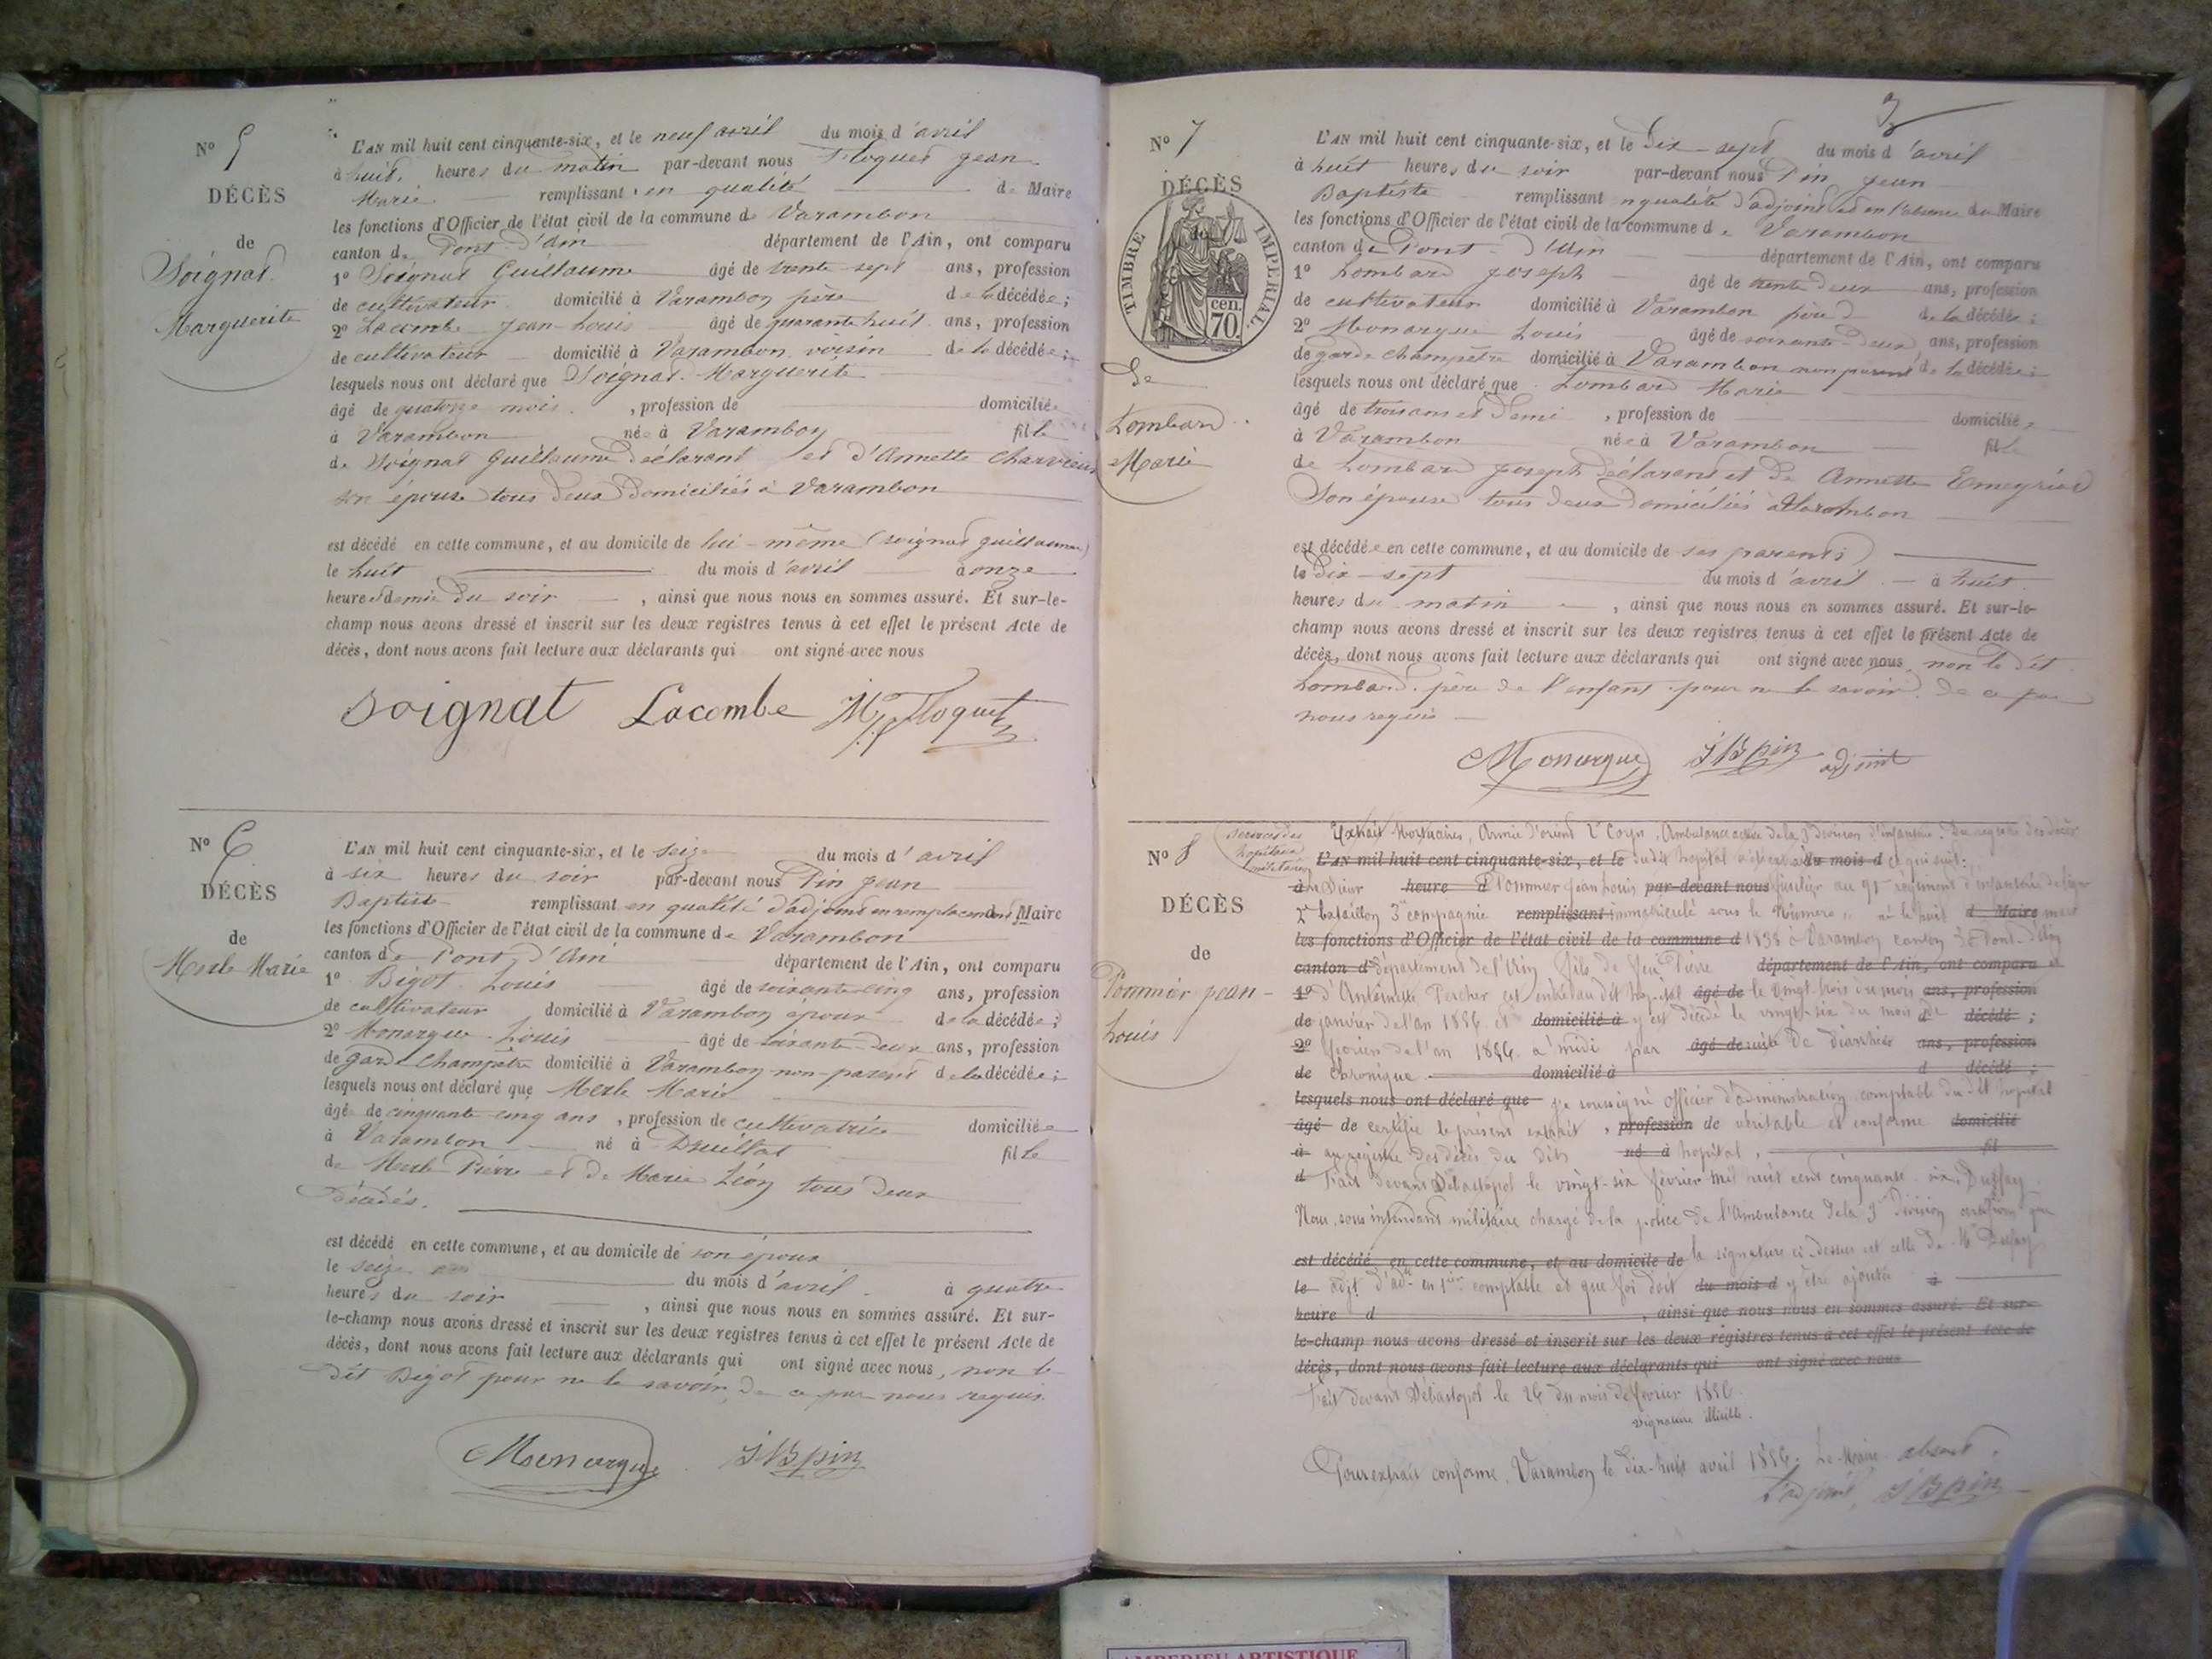 N° 5
DÉCÈS
de
Soignat
Marguerite
L'AN mil huit cent cinquante-six, et le neuf avril du mois d'avril
à huit heures du matin par-devant nous Floquet jean
Marie remplissant en qualité de Maire
les fonctions d'Officier de l'état civil de la commune de Varambon
canton de Pont-d'ain département de l'Ain, ont comparu
1° Soignat Guillaume âgé de trente sept ans, profession
de cultivateur domicilié à Varambon père de la décédée;
2° Lacombe jean-Louis âgé de quarante huit ans, profession
de cultivateur domicilié à Varambon voisin de la décédée;
lesquels nous ont déclaré que Soignat Marguerite
âgé de quatorze mois, profession de domiciliée
à Varambon née à Varambon fille
de Soignat Guillaume déclarant et d'Annette Charvieux
son épouse tous deux domiciliés à Varambon
est décédé en cette commune, et au domicile de lui-même (soignat guillaume)
le huit du mois d'avril à onze
heure et demie du soir, ainsi que nous nous en sommes assuré. Et sur-le-
champ nous avons dressé et inscrit sur les deux registres tenus à cet effet le présent Acte de
décès, dont nous avons fait lecture aux déclarants qui ont signé avec nous
Soignat Lacombe Floquet
N° 6
DÉCÈS
de
Merle Marie
L'AN mil huit cent cinquante-six, et le seize du mois d'avril
à six heures du soir par-devant nous Pin jean
Baptiste remplissant en qualité d'adjoint en remplacement du Maire
les fonctions d'Officier de l'état civil de la commune de Varambon
canton de Pont-d'Ain département de l'Ain, ont comparu
1° Bigot Louis âgé de soixante-cinq ans, profession
de cultivateur domicilié à Varambon époux de la décédée;
2° Monarque Louis âgé de soixante-deux ans, profession
de garde Champêtre domicilié à Varambon non-parent de la décédée;
lesquels nous ont déclaré que Merle Marie
âgé de cinquante-cinq ans, profession de cultivatrice domiciliée
à Varambon né à Druillat fille
de Merle Pierre et de Marie Léon tous deux
décédés.
est décédé en cette commune, et au domicile de son époux
le seize du mois d'avril à quatre
heures du soir, ainsi que nous nous en sommes assuré. Et sur-
le-champ nous avons dressé et inscrit sur les deux registres tenus à cet effet le présent Acte de
décès, dont nous avons fait lecture aux déclarants qui ont signé avec nous, non le
dit Bigot pour ne le savoir de ce par nous requis.
Monarque JBpin
3
N° 7
DÉCÈS
de
TIMBRE IMPERIAL.
cen.
70
de
Lombard
Marie
L'AN mil huit cent cinquante-six, et le Dix-sept du mois d'avril
à huit heures du soir par-devant nous Pin jean
Baptiste remplissant n qualité d'adjoint et en l'absence du Maire
les fonctions d'Officier de l'état civil de la commune de Varambon
canton de Pont-d'Ain département de l'Ain, ont comparu
1° Lombard joseph âgé de trente deux ans, profession
de cultivateur domicilié à Varambon père de la décédée;
2° Monarque Louis âgé de soixante-deux ans, profession
de garde champêtre domicilié à Varambon non parent de la décédée;
lesquels nous ont déclaré que Lombard Marie
âgé de trois ans et demi, profession de domiciliée
à Varambon née à Varambon fille
de Lombard joseph déclarant et de Annette
Son épouse tous deux domiciliés à Varambon
est décédée en cette commune, et au domicile de ses parents
le Dix-sept du mois d'avril à huit
heures du matin, ainsi que nous nous en sommes assuré. Et sur-le-
champ nous avons dressé et inscrit sur les deux registres tenus à cet effet le présent Acte de
décès, dont nous avons fait lecture aux déclarants qui ont signé avec nous non le dit
Lombard père de l'enfant pour ne le savoir de ce par
nous requis
Monarque JBpin adjoint
N° 8
services des
hopitaux
militaires
DÉCÈS
de
Pommier jean-
Louis
Extrait Mortuaire, Armée d'orient 2e Corps, Ambulance active de la 3e division d'infanterie. Du registre des décès
L'AN mil huit cent cinquante-six, et le dudit hopital a été extrait du mois d ce qui suit:
à le Sieur heure d Pommier jean Louis par-devant nous fusilier au 91e régiment d'infanterie de ligne
2e bataillon 3e compagnie remplissant immatriculé sous le Numéro né le huit d Maire mars
les fonctions d'Officier de l'état civil de la commune d 1833 à Varambon canton de Pont-d'Ain
canton d département de l'Ain fils de feu Pierre département de l'Ain, ont comparu et
1° d'Antoinette Percher est entré au dit hôpital âgé de le vingt-trois du mois ans, profession
de janvier de l'an 1856 et domicilié à y est décédé le vingt-six du mois de d décédé;
2° février de l'an 1856 à midi par âgé de suite de diarrhée ans, profession
de chronique. domicilié à d décédé;
lesquels nous ont déclaré que je soussigné officier d'administration comptable du dit hopital
âgé de certifie le présent extrait, profession de véritable et conforme domicilié
à au registre des décès du dit né à hopital, fil
d Fait devant Sébastopol le vingt-six février mil huit cent cinquante-six. Duffay
Nous, sous intendant militaire chargé de la police de l'Ambulance de la 3e division certifions que
est décédé en cette commune, et au domicile de la signature ci-dessus est celle de Mr Duffay
le adjt d'adon en 1er comptable et que foi doit du mois d y être ajoutée à
heure d, ainsi que nous nous en sommes assuré. Et sur-
le-champ nous avons dressé et inscrit sur les deux registres tenus à cet effet le présent Acte de
décès, dont nous avons fait lecture aux déclarants qui ont signé avec nous
Fait devant Sébastopol le 26 du mois de février 1856.
signature illisible.
Pour extrait conforme, Varambon le dix-huit avril 1856. Le Maire absent.
L'adjoint, JBpin
AMBERIEU ARTISTIQUE